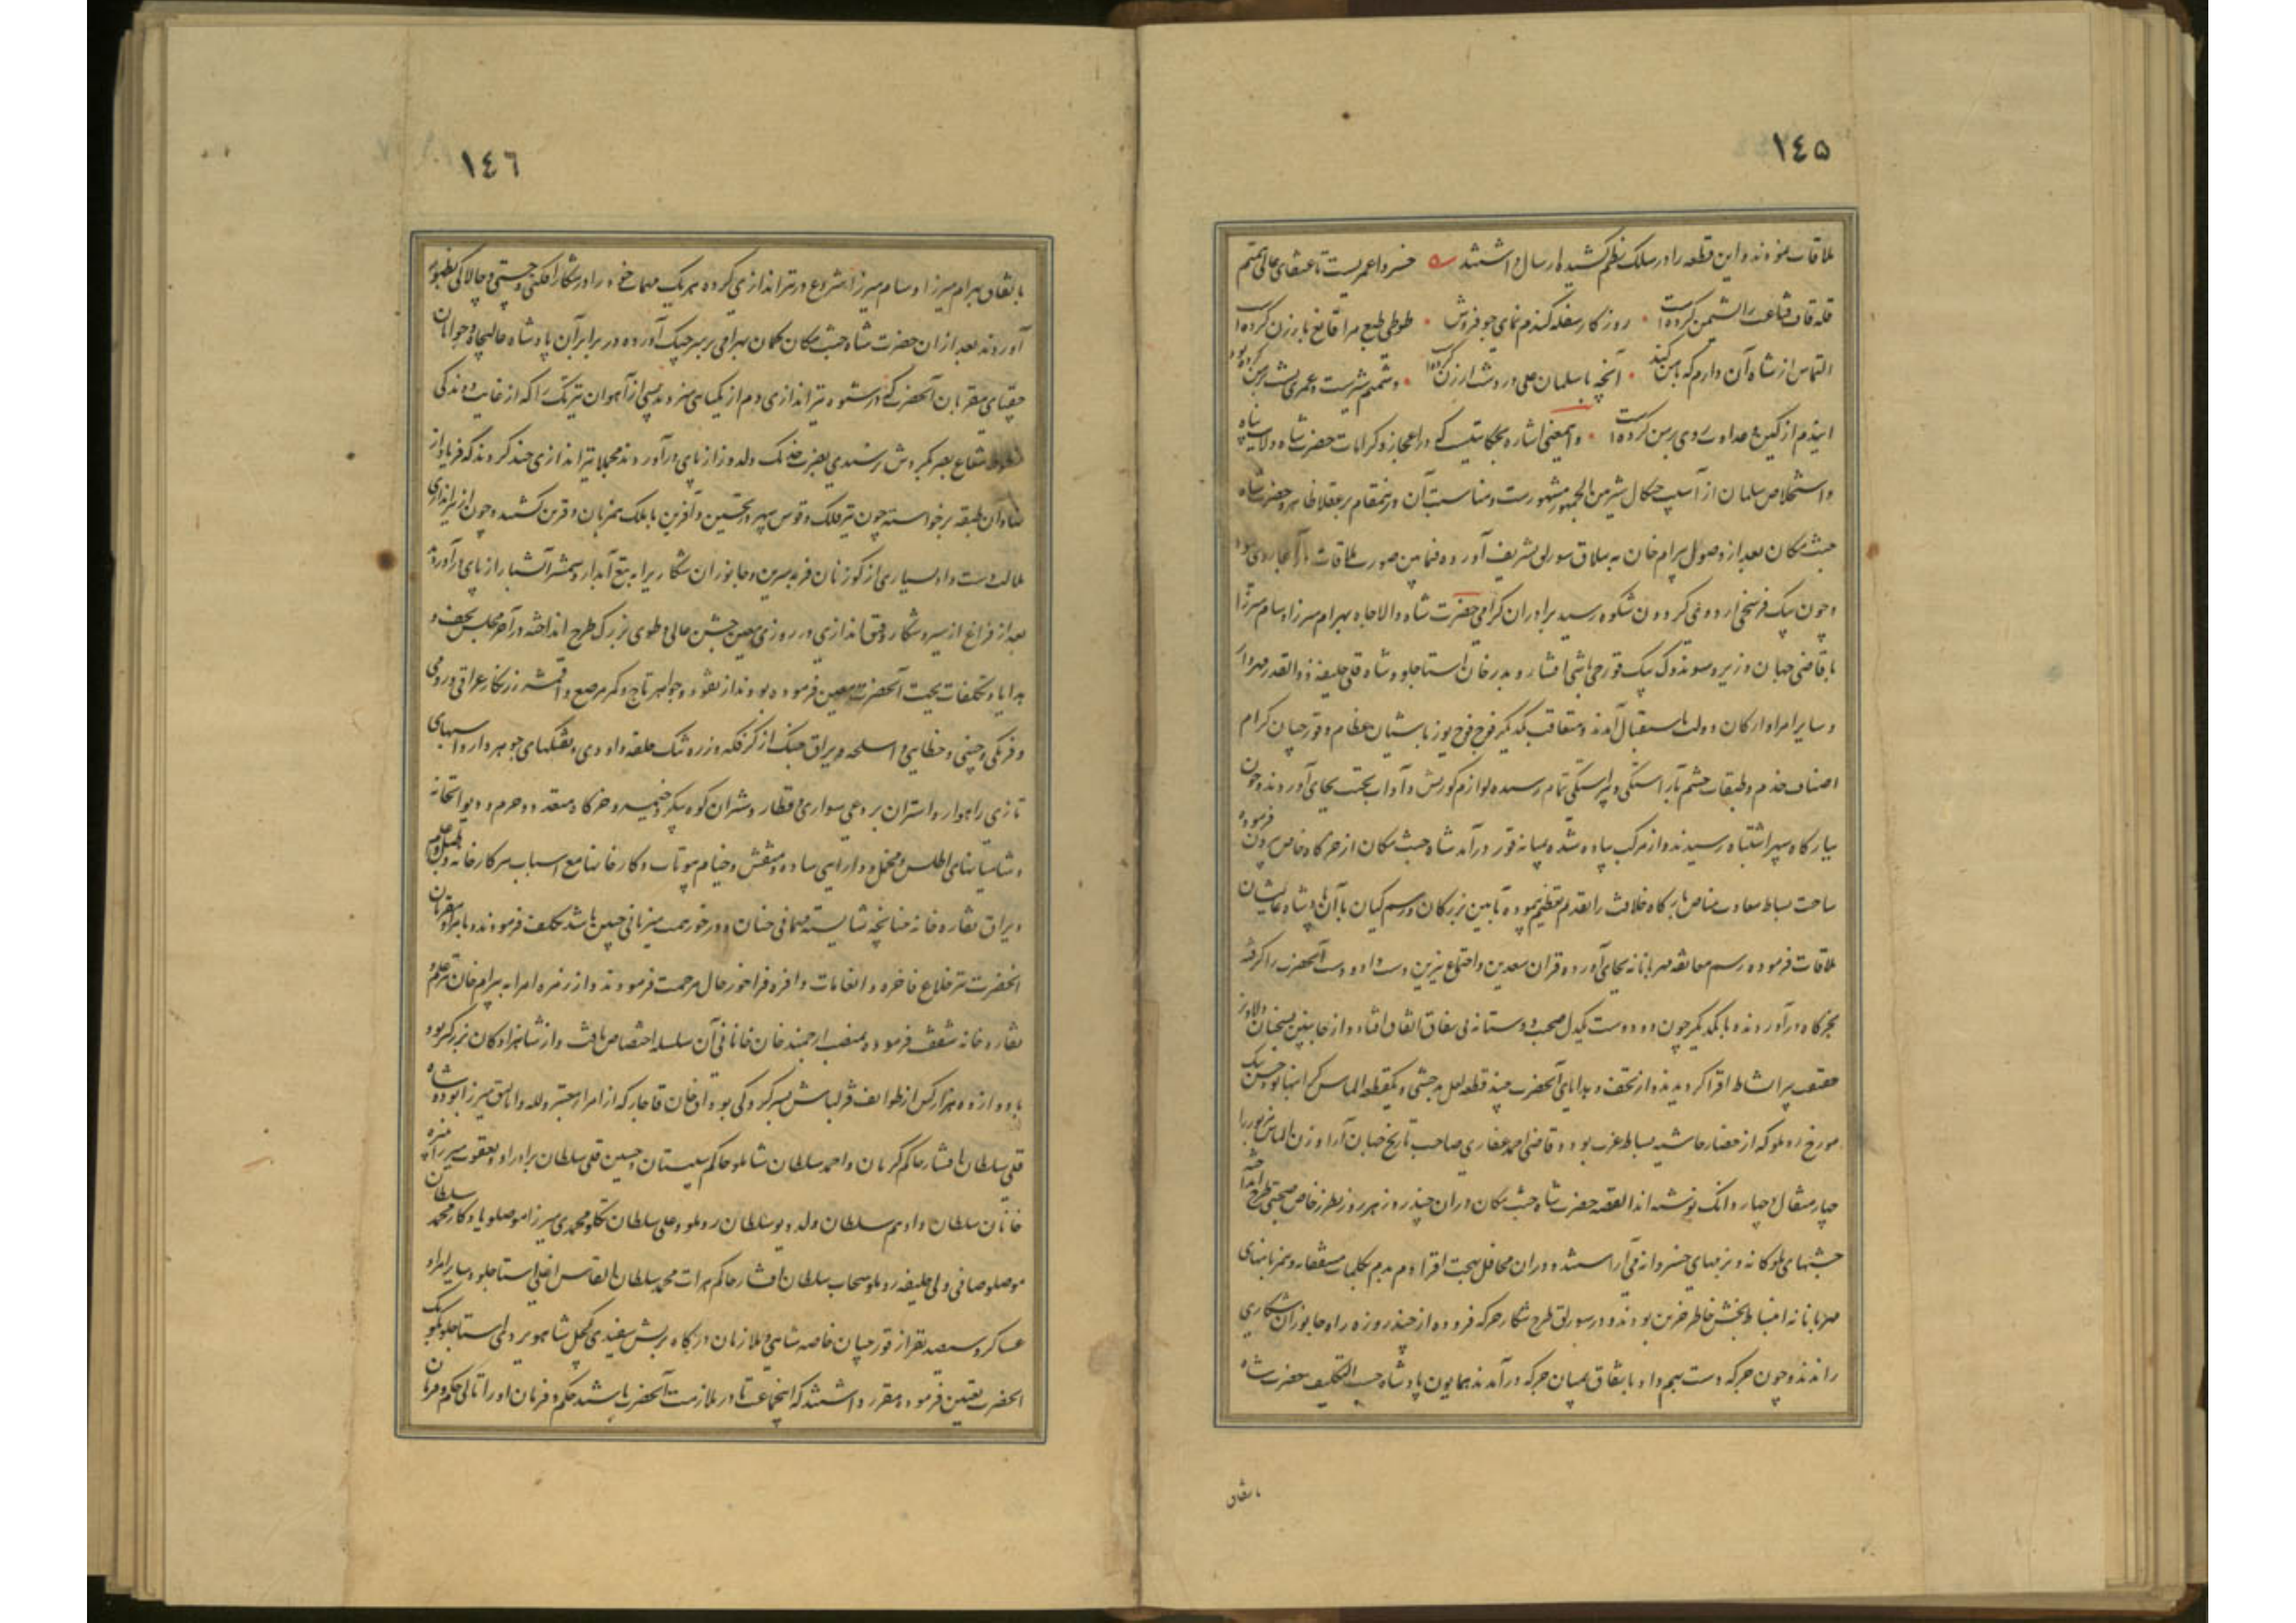 ١٤٥
ملاقات نمودند و این قطعه را در سلک نظم کشیده ارسال داشتند خسروا عمریست تا عنقای عالی همتم
قله قاف قناعت را نشیمن کرده است روزگار سفله گندم نمای جو فروش طوطی طبع مرا قانع بارزن کرده است
التماس از شاه آن دارم که با من کند آنچه با سلمان علی در دشت ارژن کرده است دشمنم شیرست و عمری پشت بر من کرده بود
ایندم از کین و عداوت روی بر من کرده است و این معنی اشاره بحکایتیست که در اعجاز و کرامات حضرت شاه ولایت پناه
و استخلاص سلمان از آسیب چنگال شیر بین الجمهور مشهورست و مناسبت آن درینمقام بر عقلا ظاهر و حضرت شاه
جنت مکان بعد از وصول بیرام خان به ییلاق سورلق تشریف آورده فیما بین صورت ملاقات در آنجا روی نمود
و چون بیک فرسخی اردوی گردون شکوه رسید برادران گرامی حضرت شاه والاجاه بهرام میرزا و سام میرزا
با قاضی جهان وزیر و سوندوک بیک قورچی باشی افشار و بدرخان استاجلو و شاه قلی خلیفه ذوالقدر مهردار
و سایر امرا و ارکان دولت باستقبال آمدند و متعاقب یکدیگر فوج فوج یوزباشیان عظام و قورچیان کرام
اصناف خدم و طبقات حشم بآراستگی و پیراستگی تمام رسیده لوازم کورنش و آداب تحیت بجای آوردند و چون
ببارگاه سپهر اشتباه رسیدند و از مرکب پیاده شده بمیانه قور درآمد شاه جنت مکان از خرگاه خاص بیرون فرموده
ساحت بساط سعادت مناص بارگاه خلافت را بقدم تعظیم پیموده بآیین بزرگان و رسم کیان با آن پادشاه عالیشان
ملاقات فرموده رسم معانقه مهربانانه بجای آورده قران سعدین و اجتماع نیرین دست داد و دست آنحضرت را گرفته
بخرگاه درآوردند و با یکدیگر چون دو دوست یکدل صحبت دوستانه بی نفاق اتفاق افتاد و از جانبین بسخنان دلاویز
حقیقت پیرا نشاط افزا گردیدند و از تحف و هدایای آنحضرت چند قطعه لعل بدخشی و یکقطعه الماس که حسن بیک
مورخ روملو که از حضار حاشیه بساط عزت بود و قاضی احمد غفاری صاحب تاریخ جهان آرا وزن الماس مزبور را
چهار مثقال و چهار دانگ نوشته اند القصه حضرت شاه جنت مکان در آن چند روز هر روز بطرز خاص صحبتی طرح انداخته
جشنهای ملوکانه و بزمهای خسروانه می آراستند و در آن محافل بهجت افزا دم بدم بکلمات مشفقانه و همزبانیهای
مهربانانه انبساط بخش خاطر حزین بودند و در سورلق طرح شکار جرگه فرموده از چند روزه راه جانوران شکاری
راندند و چون جرگه دست بهم داد باتفاق بمیان جرگه درآمدند همایون پادشاه حسب التکلیف حضرت شاه
باتفاق
١٤٦
باتفاق بهرام میرزا و سام میرزا شروع در تیراندازی کرده هر یک مهارت خود را در شکار افکنی و چستی و چالاکی بظهور
آوردند بعد از آن حضرت شاه جنت مکان کمان بهرامی بر سر چنگ آورده در برابر آن پادشاه عالیجاه و جوانان
جغتای مقربان آنحضرت که در شیوه تیراندازی دم از یکتایی میزدند بسی از آهوان تیزتک را که از غایت دوندگی
شعاع بصر بگردش نرسیدی بضرب خدنک دلدوز از پای درآوردند مجملا تیراندازی چند کردند که فریاد از
نهاد آن طبقه برخواسته چون تیر فلک و قوس سپهر در تحسین و آفرین با ملک همزبان و قرین گشتند و چون از تیراندازی
ملالت دست داد بسیاری از گوزنان فربه سرین و جانوران شکاری را به تیغ آبدار و شمشیر آتشبار از پای درآوردند
بعد از فراغ از سیر و شکار و قبق اندازی در روزی معین جشن عالی و طوی بزرک طرح انداخته در آخر مجلس تحف و
هدایا و تکلفات بجهت آنحضرت معین فرموده بودند از نقود و جواهر تاج و کمر مرصع و اقمشه زرنگار عراقی و رومی
و فرنگی و چینی و خطایی و اسلحه و یراق جنگ از کژفکه و زره تنک حلقه داودی و تفنگهای جوهردار و اسبهای
تازی راهوار و استران بردعی سواری و قطار و شتران کوه پیکر و خیمه و خرگاه متعدد و حرم و دیوانخانه
و شامیانهای اطلس و مخمل و دارایی ساده و منقش و خیام بیوتات و کارخانها مع اسباب هر کارخانه و طبل و علم
و یراق نقاره خانه چنانچه شایسته مهمانی چنان و در خور همت میزبانی چنین باشد تکلف فرمودند و بامرا و مقربان
آنحضرت نیز خلاع فاخره و انعامات وافره فراخور حال مرحمت فرمودند و از زمره امرا به بیرام خان نیز علم و
نقاره خانه شفقت فرموده بمنصب ارجمند خان خانانی آن سلسله اختصاص یافت و از شاهزادگان بزرگتر بود
با دوازده هزار کس از طوایف قزلباش بسرکردگی بوداق خان قاجار که از امراء معتبر و لله و اتالیق میرزا بوده شاه
قلی سلطان افشار حاکم کرمان و احمد سلطان شاملو حاکم سیستان و حسین قلی سلطان برادر او و یعقوب میرزا
خانان سلطان و ادهم سلطان ولد دیو سلطان روملو و علی سلطان تکلو و محمدی میرزا موصلو یادگار محمد سلطان
موصلو صافی ولی خلیفه روملو سحاب سلطان افشار حاکم هرات محمد سلطان استاجلو و سایر امراء
عساکر و سیصد نفر از قورچیان خاصه شاهی و ملازمان درگاه بریش سفیدی کچل شاهویردی استاجلو
آنحضرت تعیین فرموده مقرر داشتند که اینجماعت تا در ملازمت آنحضرت باشند حکم و فرمان او را تالی حکم و فرمان